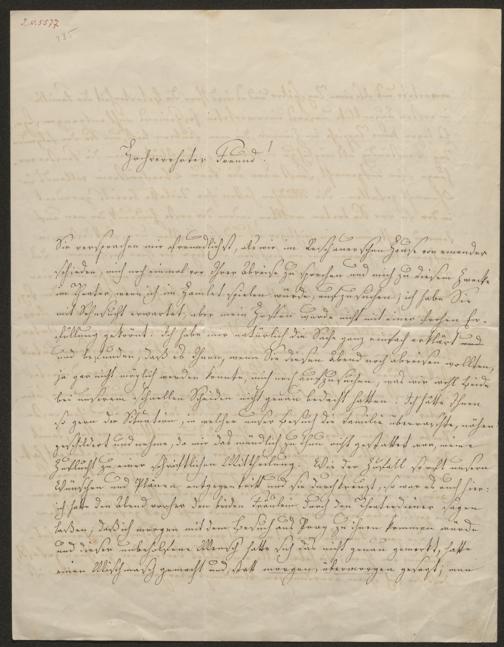 I.N. 5577
225
Hochverehrter Freund!
Sie versprachen mir freundlichst, als wir im Hause von einander
schieden, mich noch einmal vor Ihrer Abreise zu sprechen und mich zu diesem Zwecke
im Theater, wenn ich im Hamlet spielen würde, aufzusuchen; ich habe Sie
mit Sehnsucht erwartet, aber mein Hoffen wurde nicht mit einer frohen Er-
füllung gekrönt. Ich habe mir natürlich die Sache ganz einfach erklärt und
und gefunden, daß es Ihnen, wenn Sie diesen Abend noch abreisen wollten,
ja gar nicht möglich werden konnte, mich noch aufzusuchen, was wir wohl beide
bei unserem schnellen Scheiden nicht genau bedacht hatten. Ich hätte Ihnen
so gern die Situation, in welcher unser Besuch die Familie überraschte, näher
geschildert und nehme, da mir das mündlich zu thun nicht gestattet war, meine
Zuflucht zu einer schriftlichen Mittheilung. Wie der Zufall so oft unsern
Wünschen und Plänen entgegen tritt und sie durchkreuzt, so war es auch hier:
ich hatte den Abend vorher den beiden Fräulein durch den Theaterdiener sagen
laßen, daß ich morgen mit dem Besuch aus Prag zu ihnen kommen würde
und dieser unbeholfene Mensch hatte sich das nicht genau gemerkt, hatte
einen Mischmasch gemacht und, statt morgen, übermorgen gesagt; man